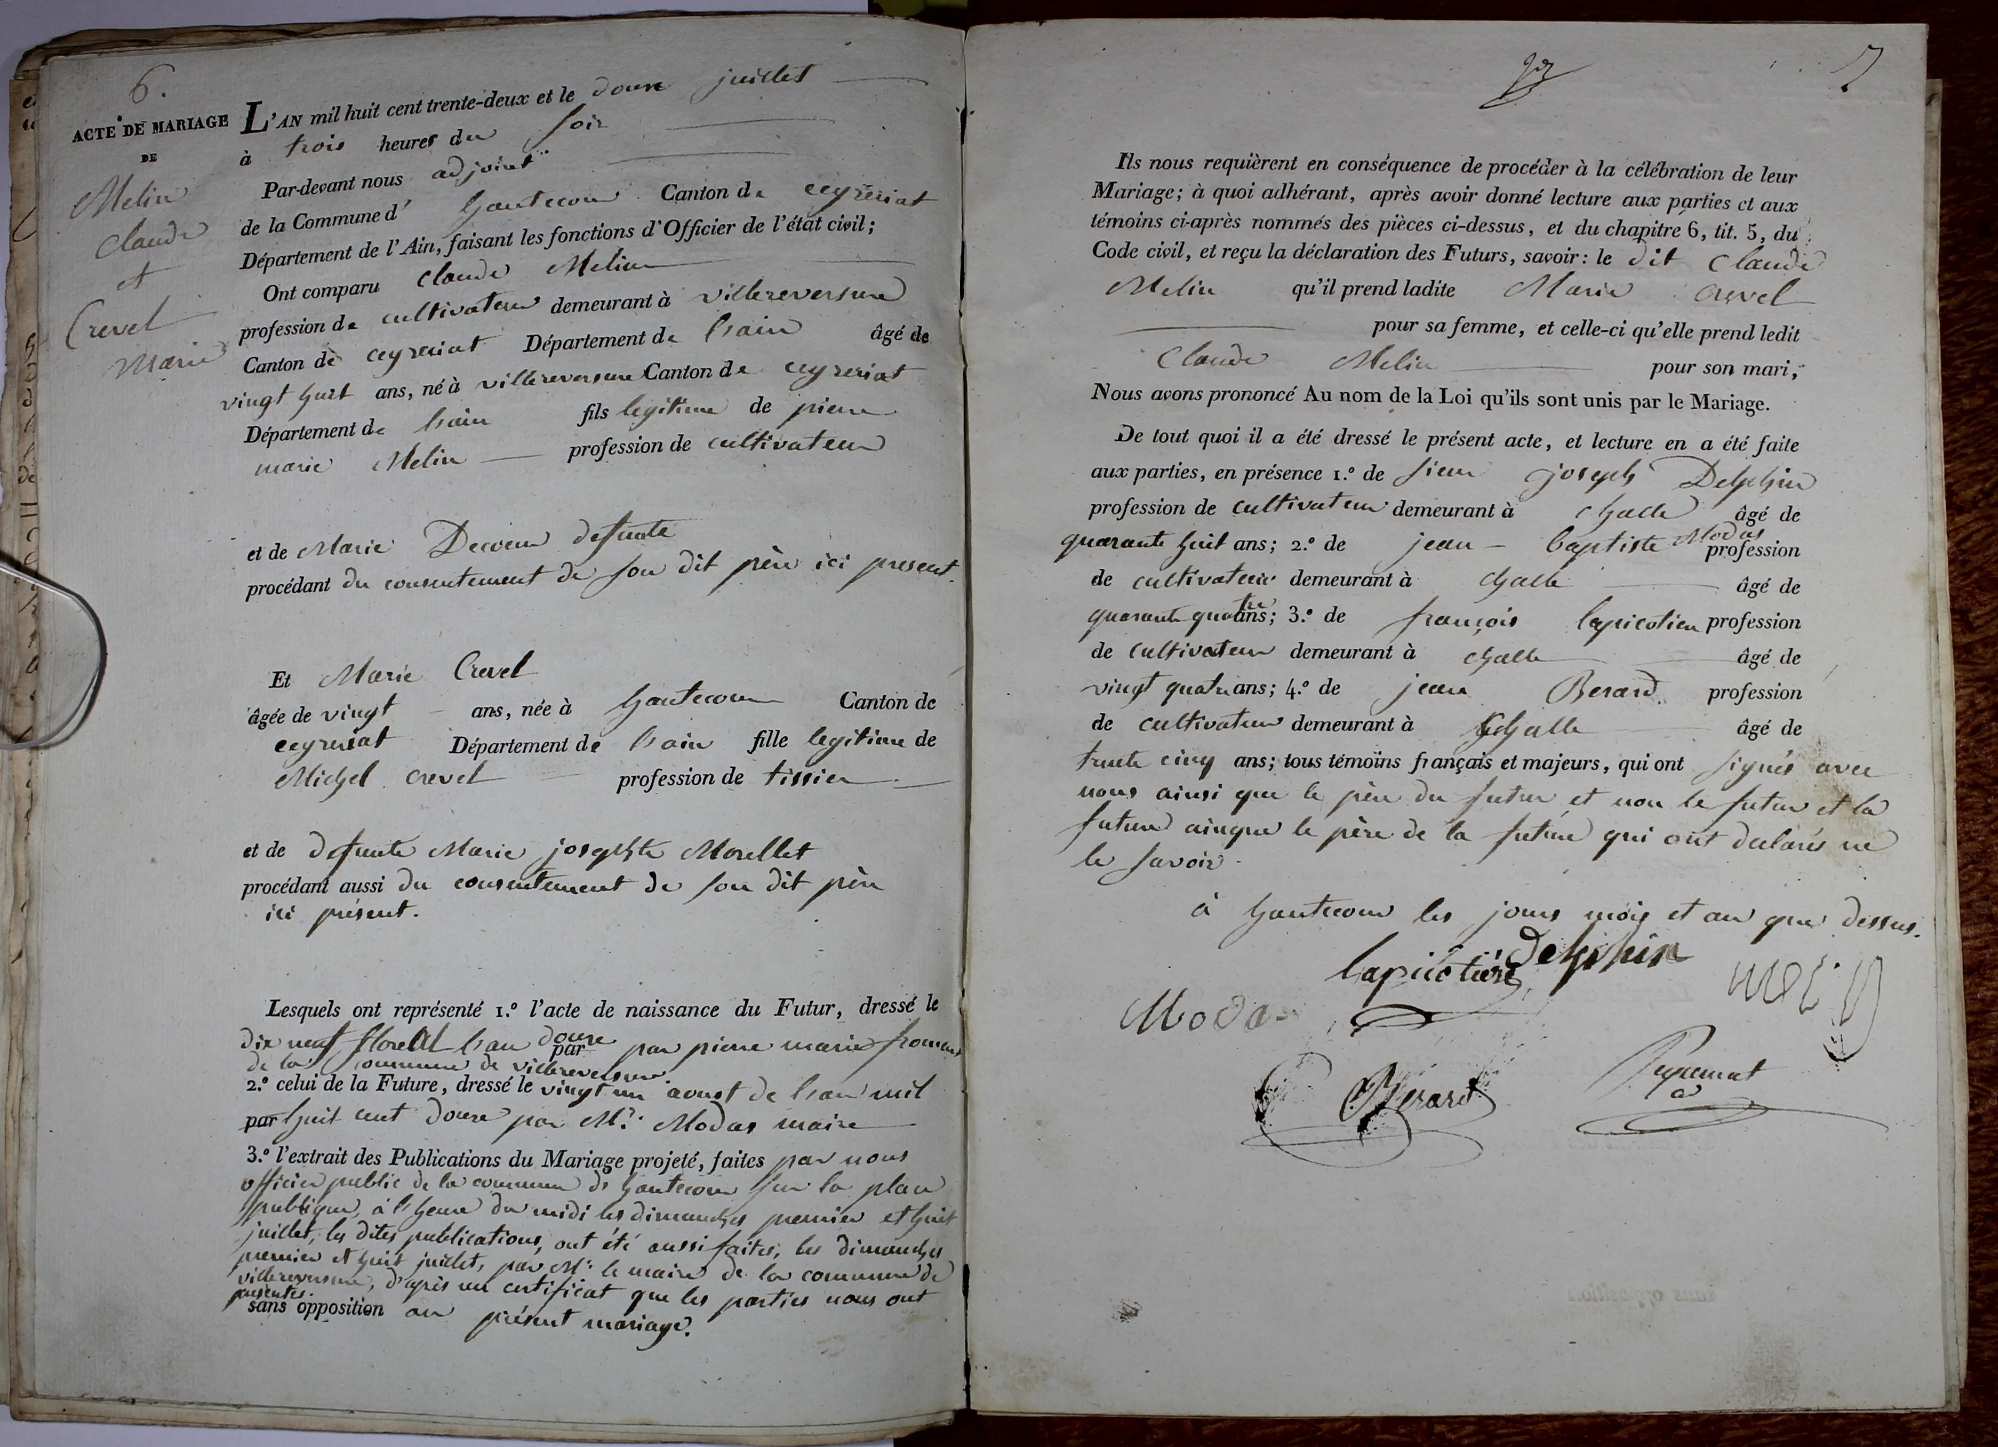 6.
ACTE DE MARIAGE
DE
Melin
Claude
et
Crevel
Marie
L'AN mil huit cent trente-deux et le douze juillet
à trois heures du soir
Par-devant nous adjoint
de la Commune d' hautecour Canton de ceyzeriat
Département de l'Ain, faisant les fonctions d'Officier de l'état civil;
Ont comparu Claude Melin
profession de cultivateur demeurant à villereversure
Canton de ceyzeriat Département de l'ain âgé de
vingt huit ans, né à villereversure Canton de ceyzeriat
Département de l'ain fils legitime de pierre
marie Melin profession de cultivateur
et de Marie Decoeur defunte
procédant du consentement de son dit père ici present.
Et Marie Crevel
âgée de vingt ans, née à hautecour Canton de
ceyzeriat Département de l'ain fille legitime de
Michel crevel profession de tissier
et de defunte Marie josephte Morellet
procédant aussi du consentement de son dit père
ici présent.
Lesquels ont représenté 1.º l'acte de naissance du Futur, dressé le
dix neuf floreal l'an douze par par pierre marie froment
de la commune de villereversure
2.º celui de la Future, dressé le vingt un aoust de l'an mil
par huit cent douze par Mr. Modas maire
3.º l'extrait des Publications du Mariage projeté, faites par nous
officier public de la commune de hautecour sur la place
publique, à l'heure du midi les dimanches premier et huit
juillet, les dites publications, ont été aussi faites, les dimanches
premier et huit juillet, par Mr. le maire de la commune de
villereversure, d'après un certificat que les parties nous ont
presentés.
sans opposition au présent mariage.
7
Ils nous requièrent en conséquence de procéder à la célébration de leur
Mariage; à quoi adhérant, après avoir donné lecture aux parties et aux
témoins ci-après nommés des pièces ci-dessus, et du chapitre 6, tit. 5, du
Code civil, et reçu la déclaration des Futurs, savoir: le dit Claude
Melin qu'il prend ladite Marie Crevel
pour sa femme, et celle-ci qu'elle prend ledit
Claude Melin pour son mari,
Nous avons prononcé Au nom de la Loi qu'ils sont unis par le Mariage.
De tout quoi il a été dressé le présent acte, et lecture en a été faite
aux parties, en présence 1.º de sieur joseph Delphin
profession de cultivateur demeurant à challe âgé de
quarante huit ans; 2.º de jean baptiste Modas profession
de cultivateur demeurant à challe âgé de
quarante quatre ans; 3.º de françois lapicotiere profession
de cultivateur demeurant à challe âgé de
vingt quatre ans; 4.º de jean Berard profession
de cultivateur demeurant à challe âgé de
trente cinq ans; tous témoins français et majeurs, qui ont signés avec
nous ainsi que le père du futur et non le futur et la
future ainque le père de la future qui ont declarés ne
le savoir.
à hautecour les jours mois et an que dessus.
lapicotiére Delphin
Moda
Bérard